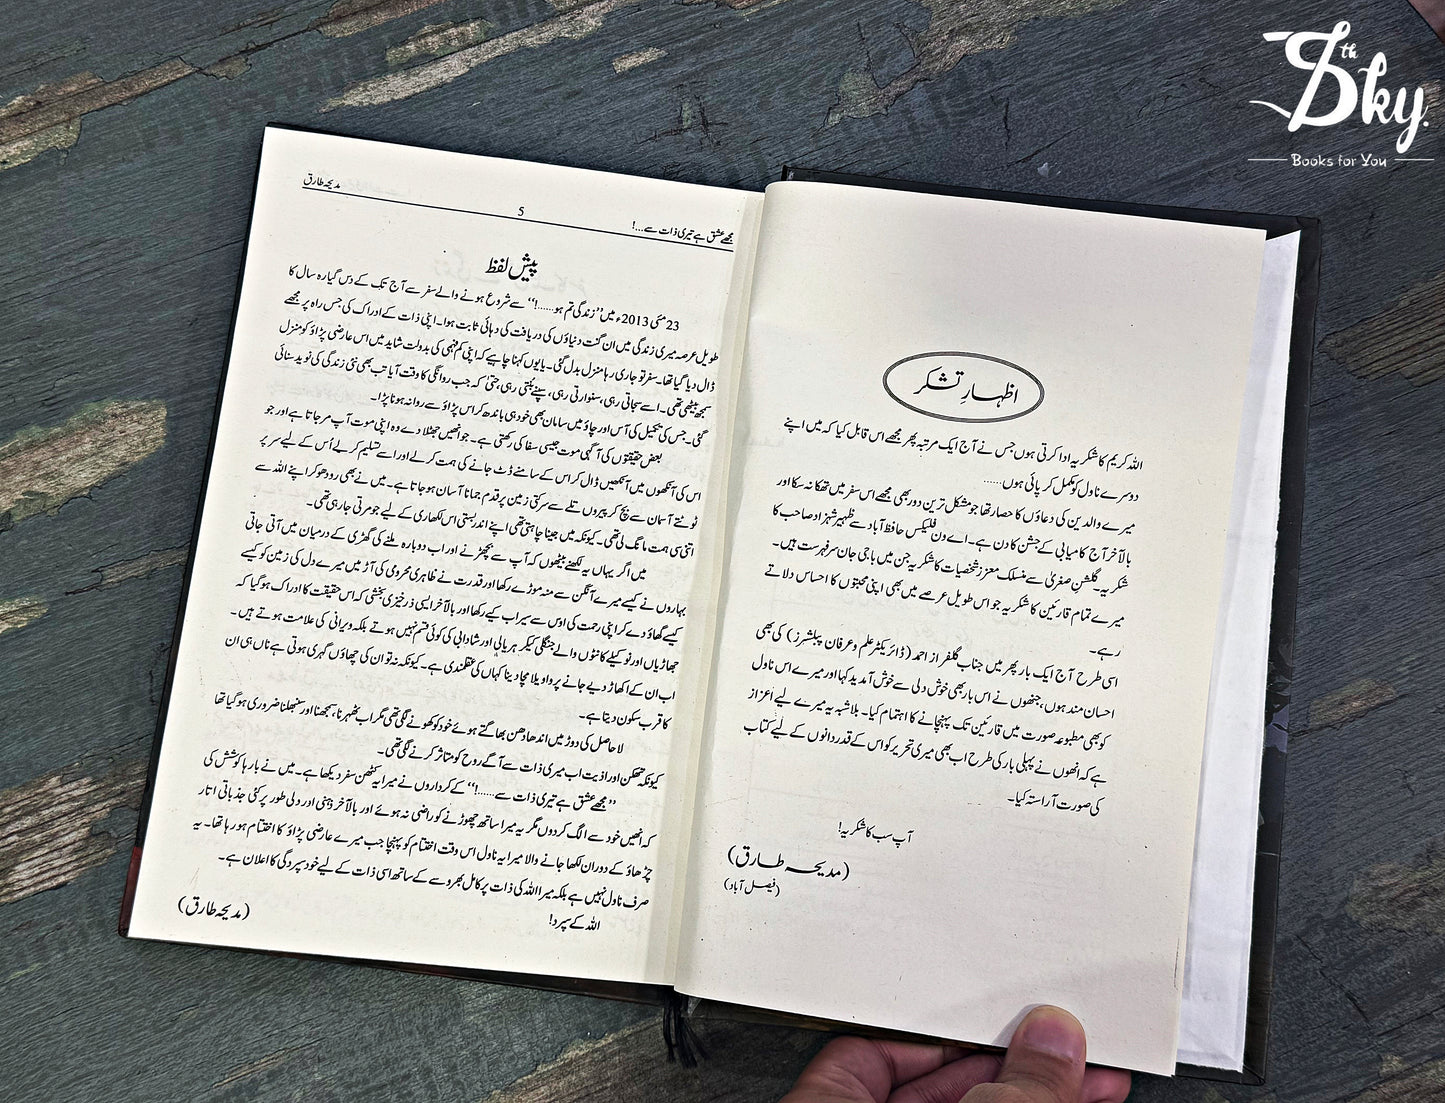 Sky th
Books for You
اظہارِ تشکر
اللہ کریم کا شکریہ ادا کرتی ہوں جس نے آج ایک مرتبہ پھر مجھے اس قابل کیا کہ میں اپنے
دوسرے ناول کو مکمل کر پائی ہوں......
میرے والدین کی دعاؤں کا حصار تھا جو مشکل ترین دور بھی مجھے اس سفر میں تھکا نہ سکا اور
بالآخر آج کامیابی کے جشن کا دن ہے۔ اے ون فلیکس حافظ آباد سے ظہیر شہزاد صاحب کا
شکریہ۔ گلشنِ صغریٰ سے منسلک معزز شخصیات کا شکریہ جن میں باجی جان سرفہرست ہیں۔
میرے تمام قارئین کا شکریہ جو اس طویل عرصے میں بھی اپنی محبتوں کا احساس دلاتے
رہے۔
اسی طرح آج ایک بار پھر میں جناب گلفراز احمد (ڈائریکٹر علم و عرفان پبلشرز) کی بھی
احسان مند ہوں، جنھوں نے اس بار بھی خوش دلی سے خوش آمدید کہا اور میرے اس ناول
کو بھی مطبوعہ صورت میں قارئین تک پہنچانے کا اہتمام کیا۔ بلاشبہ یہ میرے لیے اعزاز
ہے کہ انھوں نے پہلی بار کی طرح اب بھی میری تحریر کو اس کے قدردانوں کے لیے کتاب
کی صورت آراستہ کیا۔
آپ سب کا شکریہ!
(مدیحہ طارق)
(فیصل آباد)
مجھے عشق ہے تیری ذات سے...! 5 مدیحہ طارق
پیش لفظ
23 مئی 2013ء میں ”زندگی تم ہو......!“ سے شروع ہونے والے سفر سے آج تک کے دس گیارہ سال کا
طویل عرصہ میری زندگی میں ان گنت دنیاؤں کی دریافت کی دہائی ثابت ہوا۔ اپنی ذات کے ادراک کی جس راہ پر مجھے
ڈال دیا گیا تھا۔ سفر تو جاری رہا منزل بدل گئی۔ یا یوں کہنا چاہیے کہ اپنی کم فہمی کی بدولت شاید میں اس عارضی پڑاؤ کو منزل
سمجھ بیٹھی تھی۔ اسے سجاتی رہی، سنوارتی رہی، سپنے بنتی رہی، حتیٰ کہ جب روانگی کا وقت آیا تب بھی نئی زندگی کی نوید سنائی
گئی۔ جس کی تکمیل کی آس اور چاؤ میں سامان بھی خود ہی باندھ کر اس پڑاؤ سے روانہ ہونا پڑا۔
بعض حقیقتوں کی آگہی موت جیسی سفاکی رکھتی ہے۔ جو انھیں جھٹلا دے وہ اپنی موت آپ مر جاتا ہے اور جو
اس کی آنکھوں میں آنکھیں ڈال کر اس کے سامنے ڈٹ جانے کی ہمت کر لے اور اسے تسلیم کر لے اُس کے لیے سر پر
ٹوٹتے آسمان سے بچ کر پیروں تلے سے سرکتی زمین پر قدم جمانا آسان ہو جاتا ہے۔ میں نے بھی رو دھو کر اپنے اللہ سے
اتنی سی ہمت مانگ لی تھی۔ کیونکہ میں جینا چاہتی تھی اپنے اندر بستی اس لکھاری کے لیے جو مرتی جا رہی تھی۔
میں اگر یہاں یہ لکھنے بیٹھوں کہ آپ سے بچھڑنے اور اب دوبارہ ملنے کی گھڑی کے درمیان میں آتی جاتی
بہاروں نے کیسے میرے آنگن سے منہ موڑے رکھا اور قدرت نے ظاہری محرومی کی آڑ میں میرے دل کی زمین کو کیسے
کیسے گھاؤ دے کر اپنی رحمت کی اوس سے سیراب کیے رکھا اور بالآخر ایسی زرخیزی بخشی کہ اس حقیقت کا ادراک ہو گیا کہ
جھاڑیاں اور نوکیلے کانٹوں والے جنگلی کیکر ہریالی اور شادابی کی کوئی قسم نہیں ہوتے بلکہ ویرانی کی علامت ہوتے ہیں۔
اب ان کے اکھاڑ دیے جانے پر واویلا مچا دینا کہاں کی عقلمندی ہے۔ کیونکہ نہ تو ان کی چھاؤں گہری ہوتی ہے ناں ہی ان
کا قرب سکون دیتا ہے۔
لاحاصل کی دوڑ میں اندھا دھن بھاگتے ہوئے خود کو کھونے لگی تھی مگر اب ٹھہرنا، سمجھنا اور سنبھلنا ضروری ہو گیا تھا
کیونکہ تھکن اور اذیت اب میری ذات سے آگے روح کو متاثر کرنے لگی تھی۔
”مجھے عشق ہے تیری ذات سے......!“ کے کرداروں نے میرا یہ کٹھن سفر دیکھا ہے۔ میں نے بارہا کوشش کی
کہ انھیں خود سے الگ کر دوں مگر یہ میرا ساتھ چھوڑنے کو راضی نہ ہوئے اور بالآخر ذہنی اور دلی طور پر کئی جذباتی اتار
چڑھاؤ کے دوران لکھا جانے والا میرا یہ ناول اس وقت اختتام کو پہنچا جب میرے عارضی پڑاؤ کا اختتام ہو رہا تھا۔ یہ
صرف ناول نہیں ہے بلکہ میرا اللہ کی ذات پر کامل بھروسے کے ساتھ اسی ذات کے لیے خود سپردگی کا اعلان ہے۔
اللہ کے سپرد!
(مدیحہ طارق)